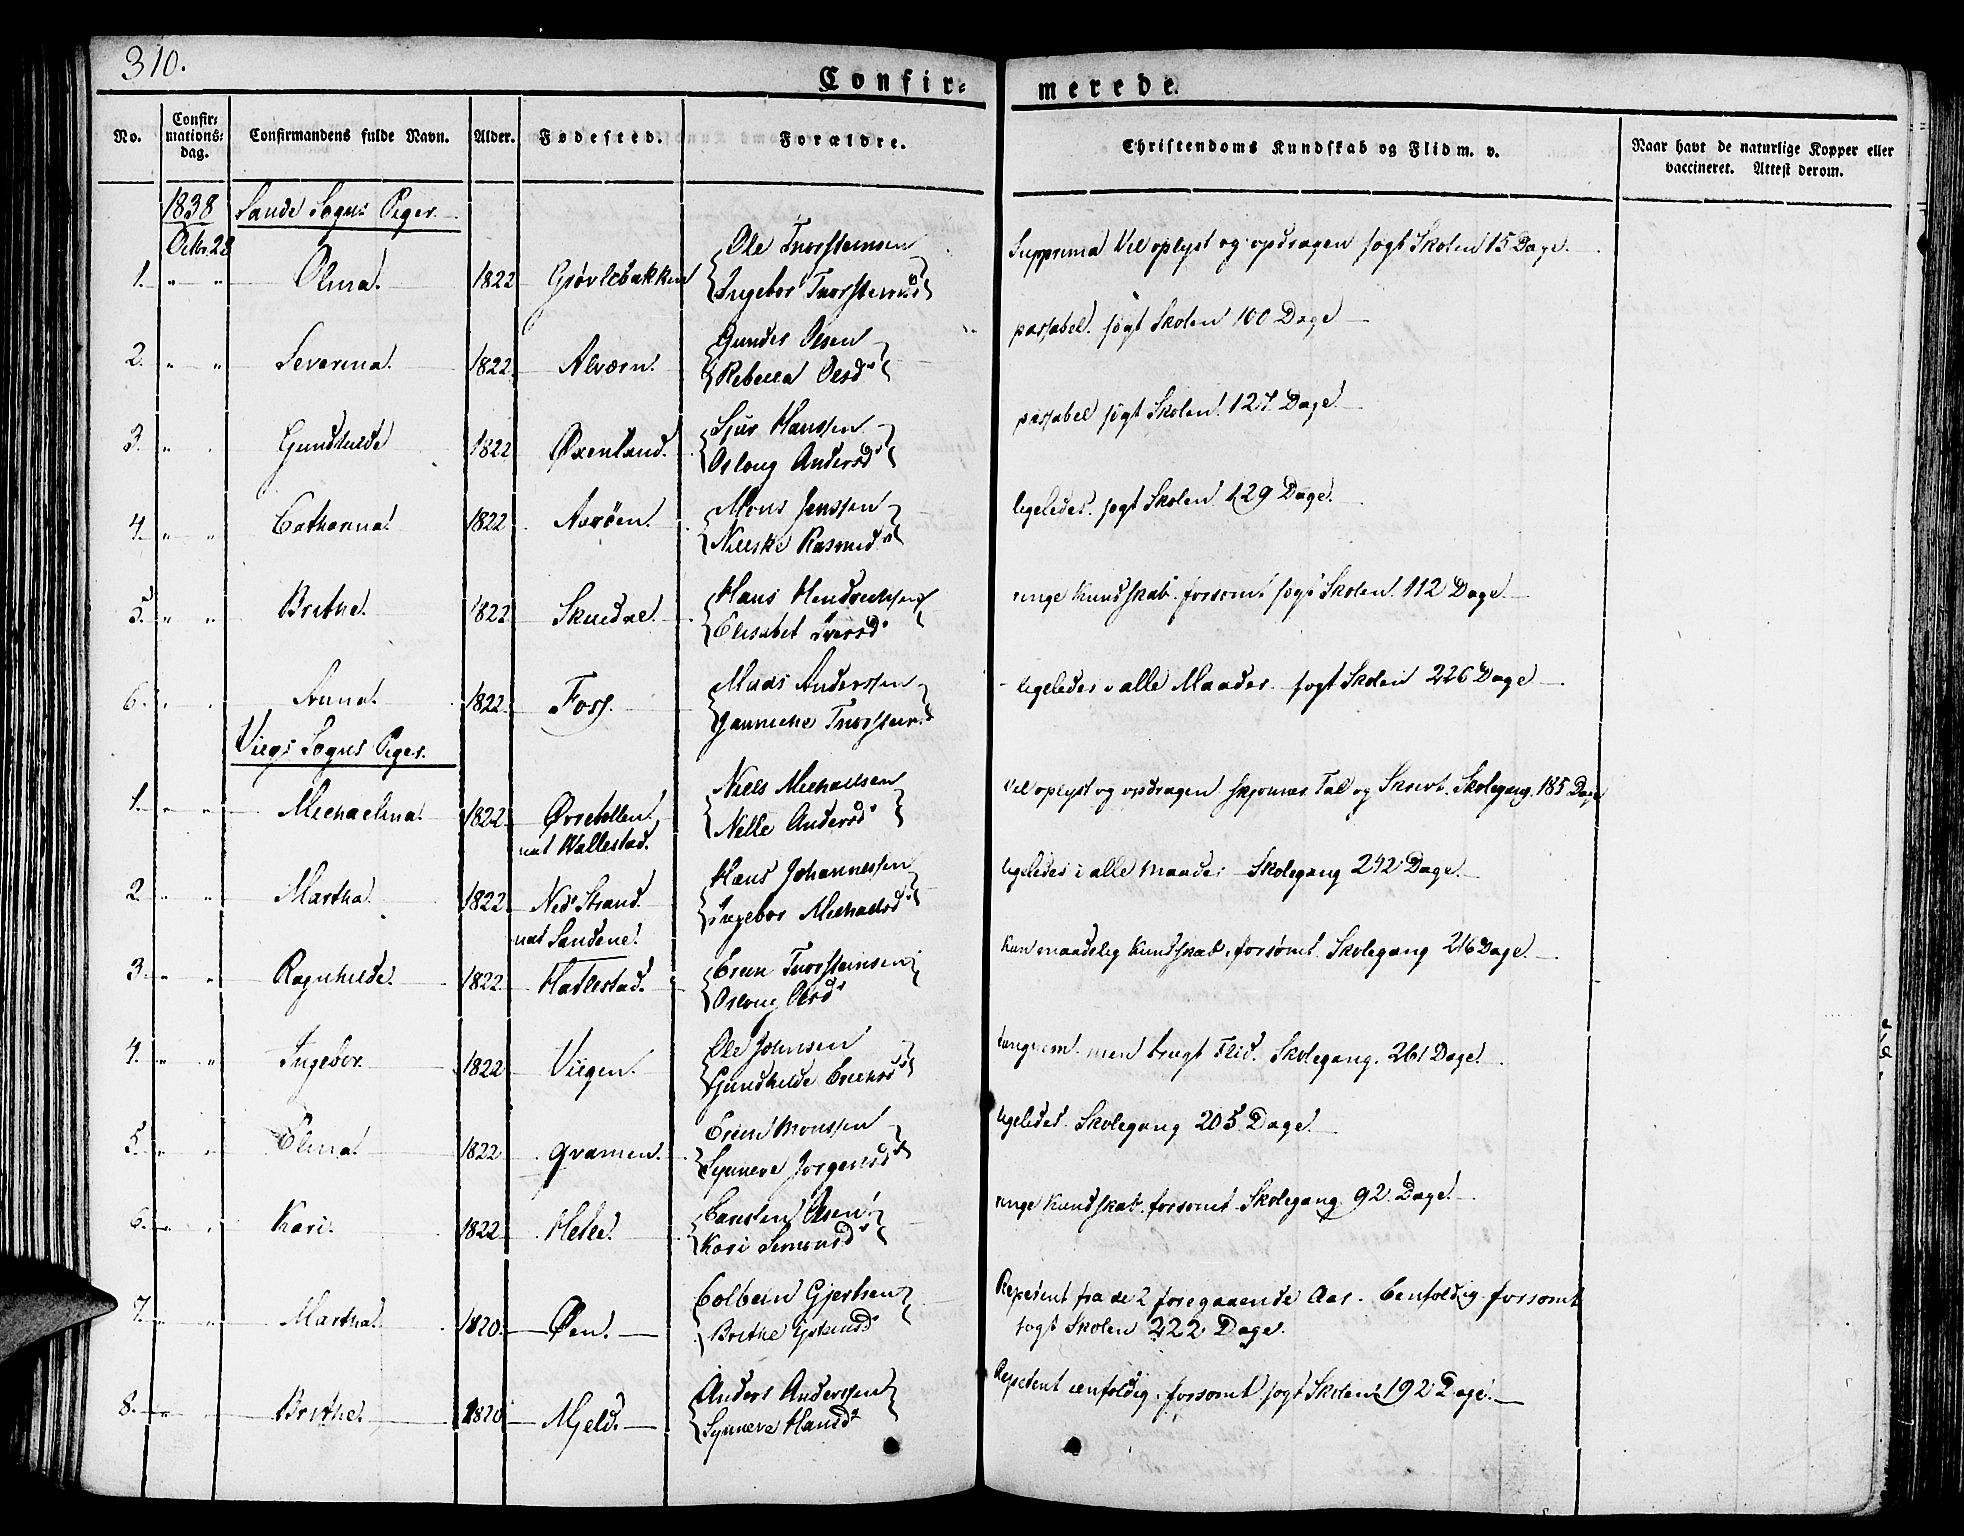 310.
Confir= merede.
No. Confir= mations= dag. Confirmandens fulde Navn. Alder. Fødested. Forældre. Christendoms Kundskab og Flid m. v. Naar havt de naturlige Kopper eller vaccineret. Attest derom.
1838 Sande Sogns Piger.
Octbr 28
1. " " Olina. 1822 Grøvlebakken Ole Thorsteinsen Supprema Vel oplyst og opdragen søgt Skolen 15 Dage.
Ingebor Thorsteinsd
2. " " Severina. 1822. Alværn. Gunder Olsen passabel. søgt Skolen 100 Dage
Rebecca Olsd
3. " " Gundhilde 1822 Øxenland. Sjur Hanssen passabel søgt Skolen 127. Dage.
Oslaug Andersd
4. " " Catharina. 1822 Aarøen. Mons Jenssen ligeledes. søgt Skolen 129 Dage.
Nilske Rasmusd
5. " " Brithe. 1822 Skuedal. Hans Hendrichsen ringe Kundskab. forsømt søgt Skolen 112 Dage.
Elisabet Iversd
6. " " Anna. 1822. Foss. Mads Anderssen ligeledes i alle Maader søgt Skolen 226 Dage
Jannicke Thorsteinsd
Viigs Sogns Piger.
1. " " Michaelina. 1822. Øvrebotten Niels Michaelsen Vel oplyst og opdragen skjønner Tal og Skrivt. Skolegang. 185 Dage
nut Wallestad. Nille Andersd
2. " " Martha. 1822. Ned Strand Hans Johannessen ligeledes i alle Maader Skolegang 242 Dage.
nut Sandene. Ingebor Michaelsd
3. " " Ragnhilde. 1822. Hatlestad. Erich Thorsteinsen Kun maadelig Kundskab, forsømt. Skolegang 216 Dage.
Oslaug Olsd
4. " " Ingebor. 1822 Viigen. Ole Johnsen tungnem. men brugt Flid. Skolegang. 261 Dage.
Gundhilde Erichsd
5. " " Elina. 1822. Qvamen. Erich Monssen ligeledes. Skolegang 205. Dage.
Synneve Jørgensd
6. " " Kari. 1822. Helle. Carsten Olsen ringe Kundskab. forsømt. Skolegang 92. Dage.
Kari Simonsd
7. " " Martha. 1820. Øen. Colbein Gjertsen Repetent fra de 2 foregaaende Aar. Eenfoldig forsømt
Brithe søgt Skolen 222 Dage.
8. " " Brithe. 1820 Mjeld. Anders Anderssen Repetent eenfoldig. forsømt søgt Skolen 192 Dage.
Synneve Hansd